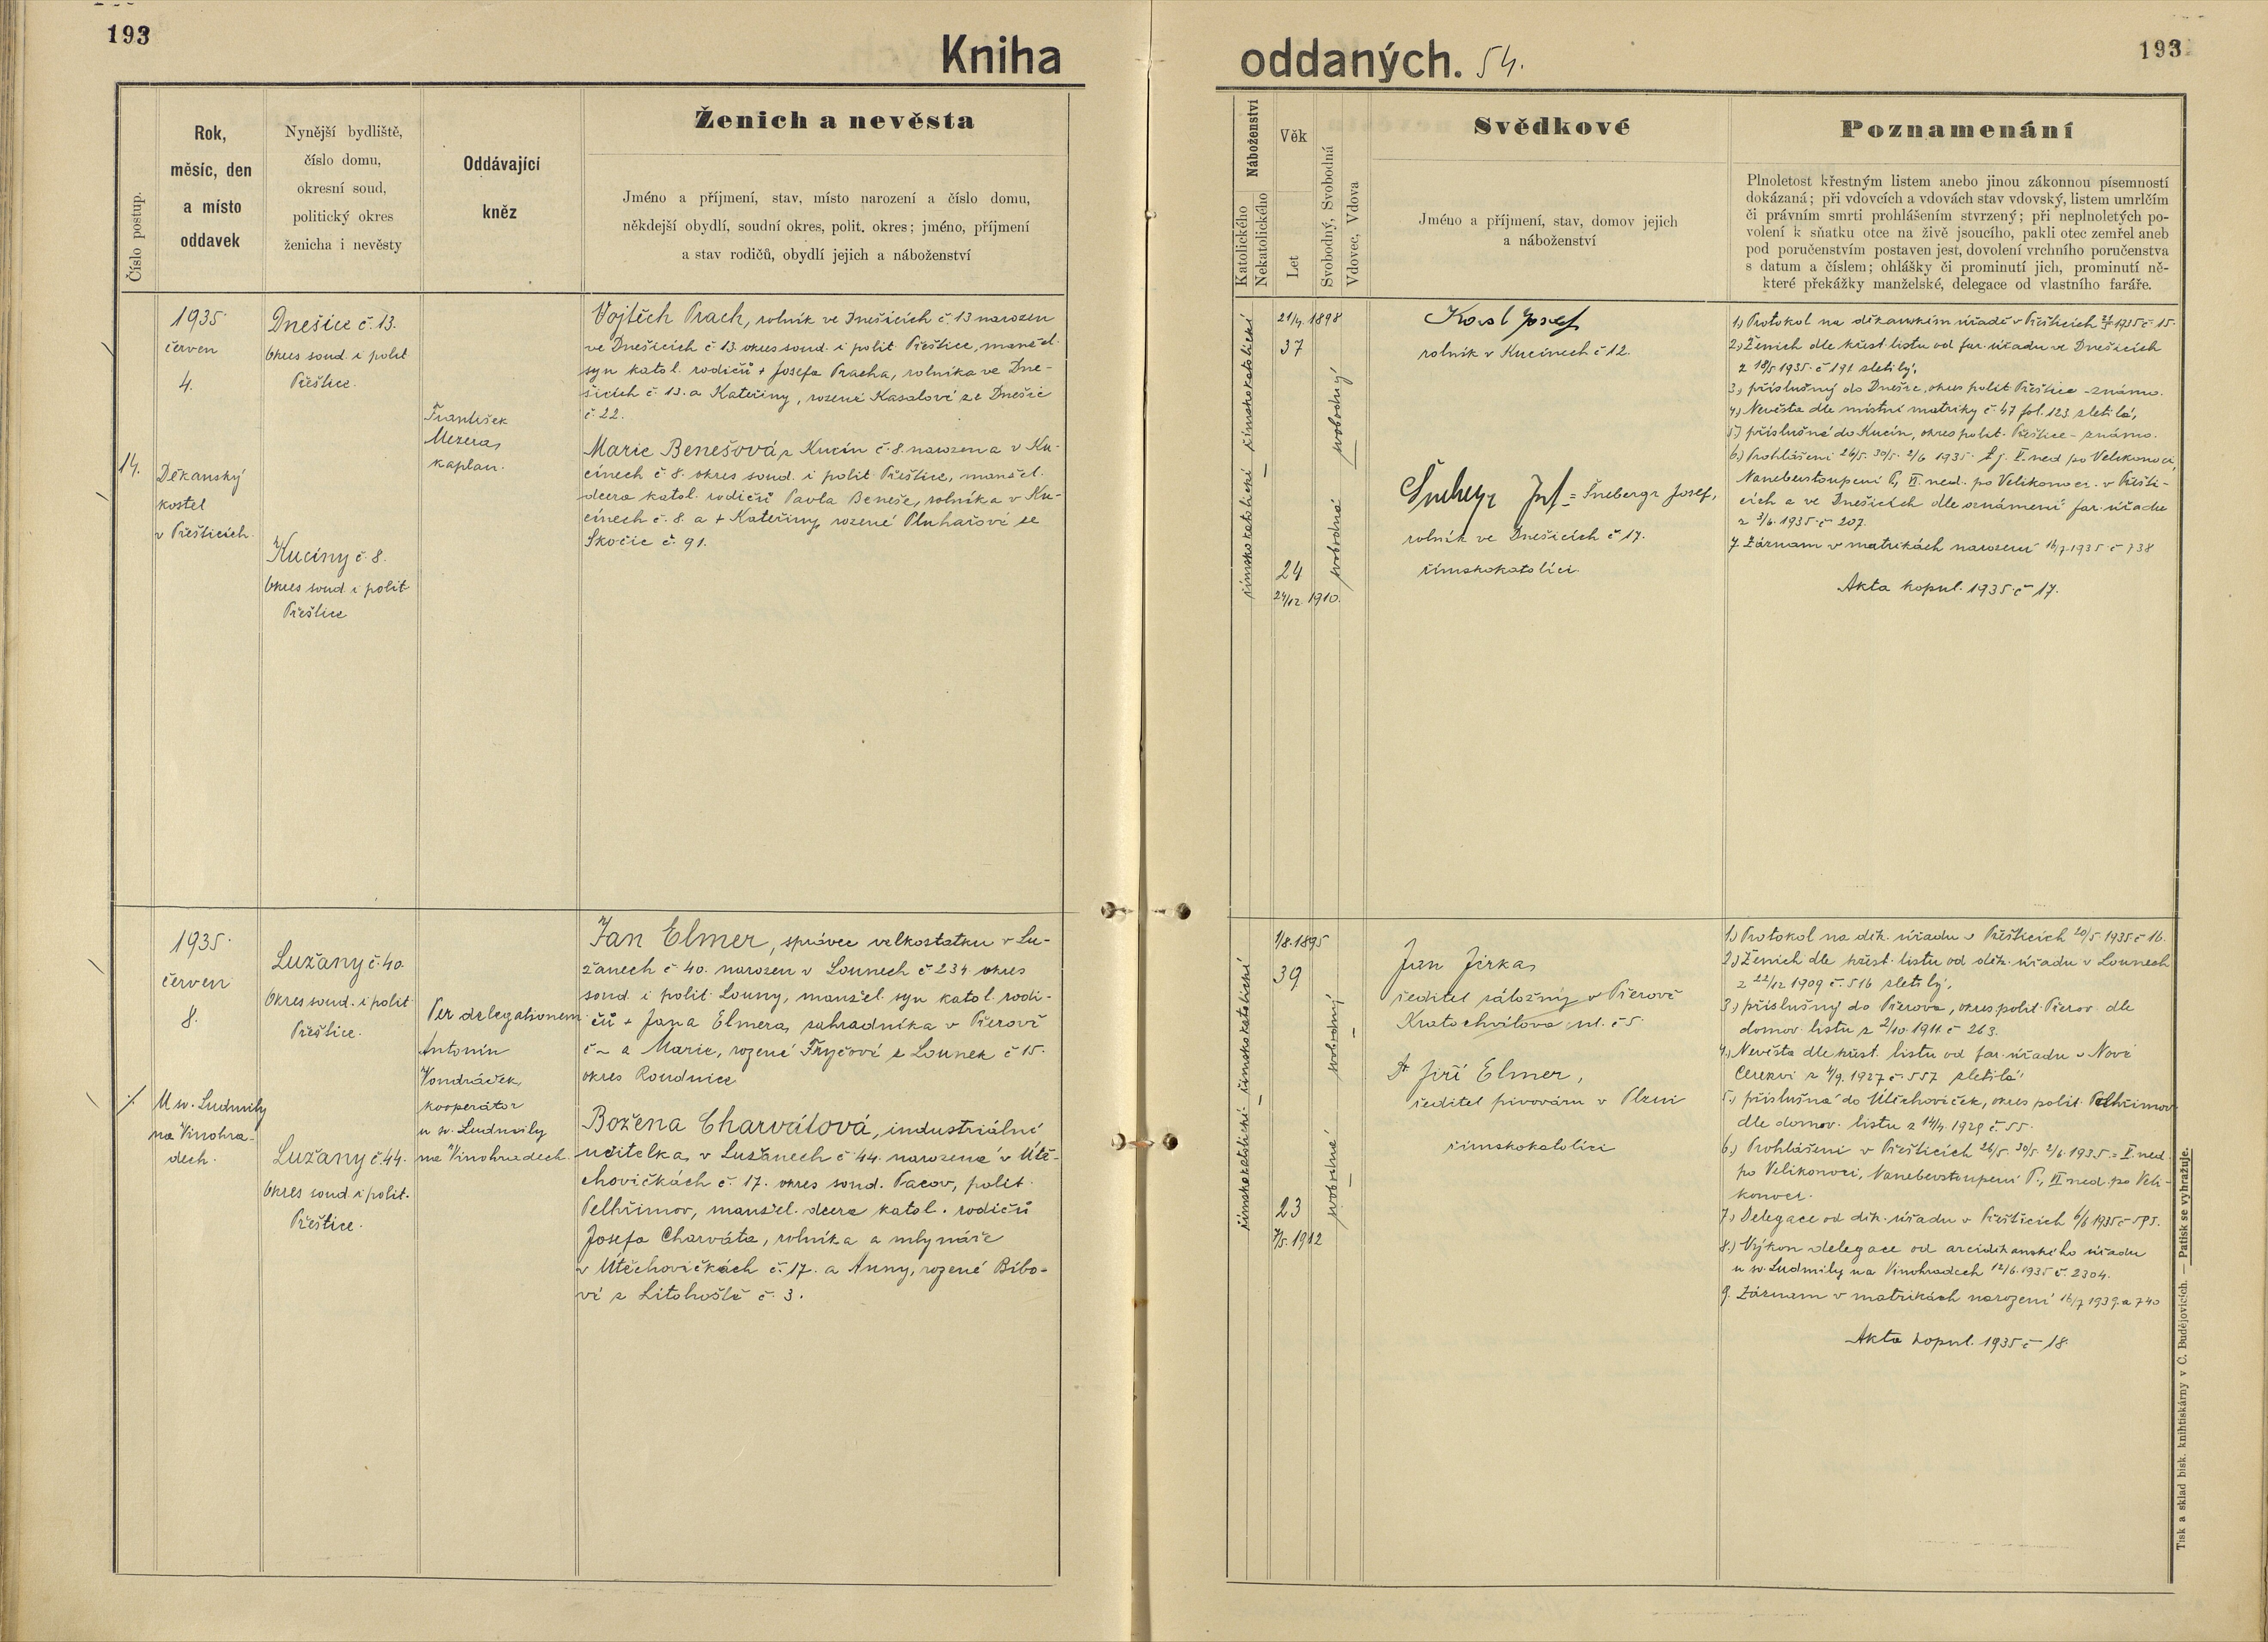 193
Kniha
oddaných. 54.
193
Číslo postup.
Rok,
měsíc, den
a místo
oddavek
Nynější bydliště,
číslo domu,
okresní soud,
politický okres
ženicha i nevěsty
Oddávající
kněz
Ženich a nevěsta
Jméno a příjmení, stav, místo narození a číslo domu,
někdejší obydlí, soudní okres, polit. okres; jméno, příjmení
a stav rodičů, obydlí jejich a náboženství
Náboženství
Katolického
Nekatolického
Věk
Let
Svobodný, Svobodná
Vdovec, Vdova
Svědkové
Jméno a příjmení, stav, domov jejich
a náboženství
Poznamenání
Plnoletost křestným listem anebo jinou zákonnou písemností
dokázaná; při vdovcích a vdovách stav vdovský, listem umrlčím
či právním smrti prohlášením stvrzený; při neplnoletých po-
volení k sňatku otce na živě jsoucího, pakli otec zemřel aneb
pod poručenstvím postaven jest, dovolení vrchního poručenstva
s datum a číslem; ohlášky či prominutí jich, prominutí ně-
které překážky manželské, delegace od vlastního faráře.
14.
1935
červen
4.
Děkanský
kostel
v Přešticích.
Dnešice č. 13.
Okres soud. i polit
Přeštice.
Kucíny č. 8.
Okres soud. i polit
Přeštice
František
Mezera,
kaplan.
Vojtěch Prach, rolník ve Dnešicích č. 13 narozen
ve Dnešicích č 13. okres soud. i polit Přeštice, manžel.
syn katol. rodičů + Josefa Pracha, rolníka ve Dne-
šicích č. 13. a Kateřiny, rozené Kasalové ze Dnešic
č. 22.
Marie Benešová, z Kucín č. 8. narozena v Ku-
cínech č 8. okres soud. i polit Přeštice, manžel.
dcera katol. rodičů Pavla Beneše, rolníka v Ku-
cínech č. 8. a + Kateřiny, rozené Pluhařové ze
Skočic č. 91.
římskokatolické římskokatolické
21/4. 1898
37
24
24/12. 1910.
svobodný
svobodná
Josef
rolník v Kucínech č 12.
= Šnebergr Josef,
rolník ve Dnešicích č 17.
římskokatolíci.
1.) Protokol na děkanském úřadě v Přešticích 1935 č 15.
2.) Ženich dle křest. listu od far. úřadu ve Dnešicích
z 18/5 1935. č 191 zletilý,
3.) příslušný do Dnešic, okres polit Přeštice - známo.
4.) Nevěsta dle místní matriky č. 47 fol. 123 zletilá,
5.) příslušná do Kucín, okres polit. Přeštice - známo.
6.) Prohlášeni 26/5. 30/5. 2/6 1935. tj. V. ned po Velikonoci,
Nanebevstoupení P, VI. ned. po Velikonoci. v Přešti-
cích a ve Dnešicích dle oznámení far. úřadu
z 3/6. 1935. č 207.
7. Záznam v matrikách narození 16/7. 1935 č 738
Akta kopul. 1935. č 17.
1935.
červen
8.
U sv. Ludmily
na Vinohra-
dech.
Lužany č. 40.
Okres soud. i polit
Přeštice.
Lužany č. 44.
Okres soud i polit.
Přeštice.
Per delegationem
Antonín
Vondráček,
kooperátor
u sv. Ludmily
na Vinohradech.
Jan Elmer, správce velkostatku v Lu-
žanech č 40. narozen v Lounech č 234 okres
soud. i polit Louny, manžel. syn katol. rodi-
čů + Jana Elmera, zahradníka v Přerově
č - a Marie, rozené Fryčové z Lounek č 15.
okres Roudnice
Božena Charvátová, industriální
učitelka, v Lužanech č 44. narozena v Útě-
chovičkách č. 17. okres soud. Pacov, polit.
Pelhřimov, manžel. dcera katol. rodičů
Josefa Charváta, rolníka a mlynáře
v Útěchovičkách č. 17. a Anny, rozené Bíbo-
vé z Litohoště č. 3.
římskokatolické římskokatolické
1/8. 1895
39
23
7/5. 1912
svobodný
svobodná
Jan Jirka,
ředitel záložny v Přerově
Kratochvílova ul. č 5.
Dr Jiří Elmer,
ředitel pivováru v Plzni
římskokatolíci
1.) Protokol na děk. úřadu v Přešticích 20/5 1935 č 16.
2.) Ženich dle křest. listu od děk. úřadu v Lounech
z 22/12 1909 č. 516 zletilý,
3.) příslušný do Přerova, okres polit. Přerov dle
domov. listu z 2/10. 1911. č 263.
4.) Nevěsta dle křest. listu od far. úřadu v Nové
Cerekvi z 4/9. 1927 č. 557 zletilá
5.) příslušná do Útěchoviček, okres polit. Pelhřimov
dle domov. listu z 14/4. 1928 č. 55.
6.) Prohlášeni v Přešticích 26/5. 30/5. 2/6. 1935. = V. ned
po Velikonoci, Nanebevstoupení P., VI ned. po Veli-
konoci.
7.) Delegace od děk. úřadu v Přešticích 6/6 1935 č 595.
8.) Výkon delegace od arciděkanského úřadu
u sv. Ludmily na Vinohradech 12/6. 1935 č. 2304.
9. Záznam v matrikách narození 16/7 1939. a 740
Akta kopul. 1935 č 18.
Tisk a sklad bisk. knihtiskárny v Č. Budějovicích. — Patisk se vyhražuje.